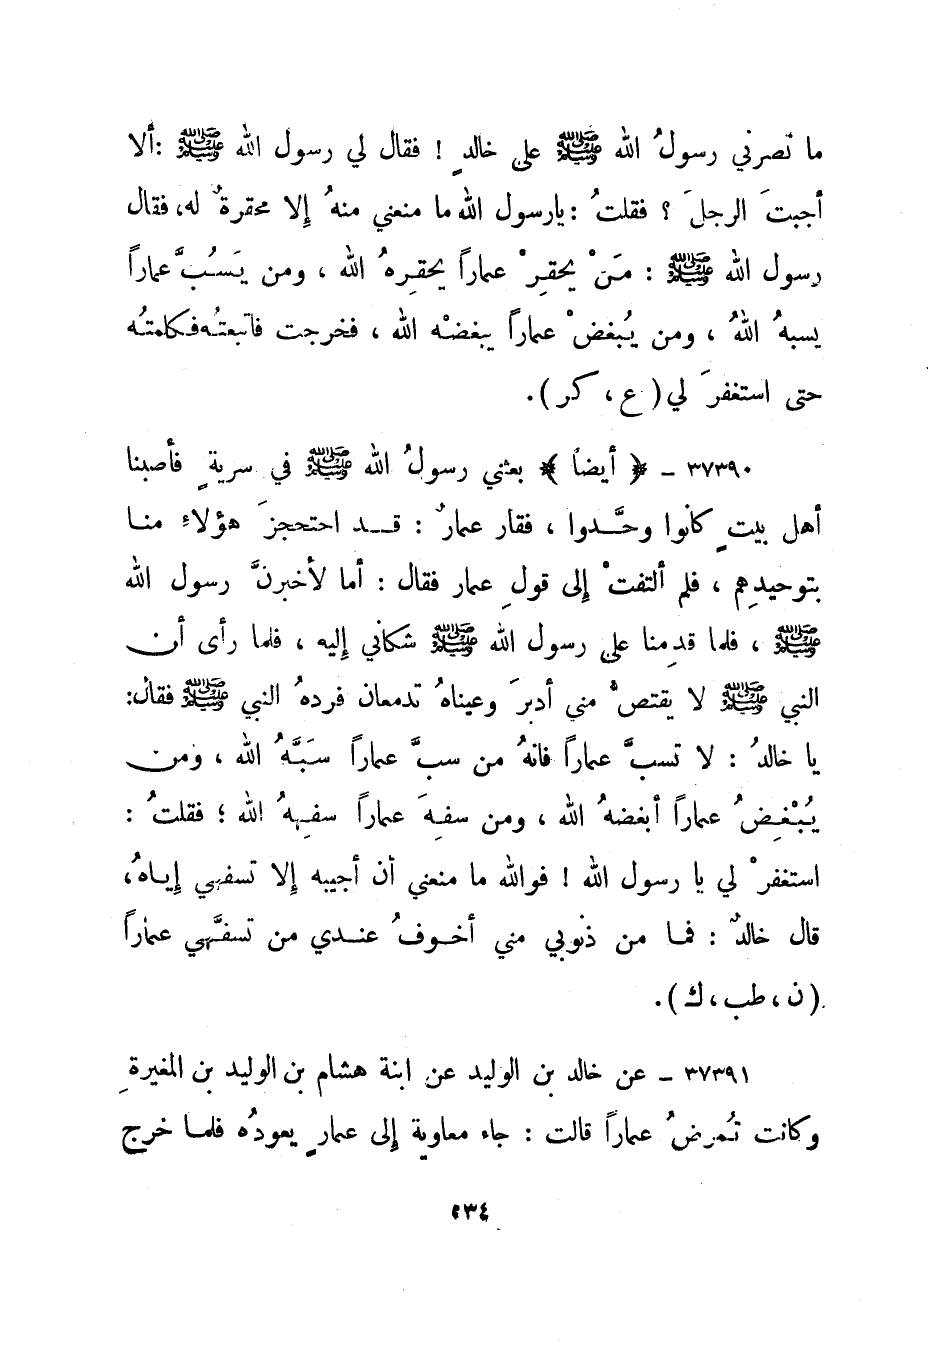 ما نصرني رسولُ الله ﷺ على خالدٍ ! فقال لي رسول الله ﷺ :ألا
أجبتَ الرجلَ ؟ فقلتُ : يارسول الله ما منعني منهُ إلا محقرةٌ له، فقال
رسول الله ﷺ : مَنْ يحقِرْ عماراً يحقِرهُ الله ، ومن يَسُبَّ عماراً
يسبهُ اللهُ ، ومن يُبغضْ عماراً يبغضْه الله ، فخرجت فاتبعتُه فكلمتُه
حتى استغفرَ لي ( ع ، كر ) .
٣٧٣٩٠ ـ ﴿ أيضاً ﴾ بعثني رسولُ الله ﷺ في سريةٍ فأصبنا
أهل بيتٍ كانوا وحَّدوا ، فقار عمارٌ : قــد احتحجزَ هؤلاءِ منـا
بتوحيدِهم ، فلم ألتفتْ إلى قولِ عمار فقال : أما لأخبرنَّ رسول الله
ﷺ ، فلما قدِمنا على رسول الله ﷺ شكاني إليه ، فلما رأى أن
النبي ﷺ لا يقتصْ مني أدبرَ وعيناهُ تدمعان فردهُ النبي ﷺ فقال:
يا خالدُ : لا تسبَّ عماراً فانهُ من سبَّ عماراً سَبَّهُ الله ، ومن
يُبْغِضُ عماراً أبغضهُ الله ، ومن سفِهَ عماراً سفِههُ الله ؛ فقلتُ :
استغفرْ لي يا رسول الله ! فوالله ما منعني أن أجيبه إلا تسفهي إيـاهُ،
قال خالدٌ : فمـا من ذنوبي مني أخـوفُ عنـدي من تسفّهي عماراً
( ن ، طب ، ك ) .
٣٧٣٩١ ـ عن خالد بن الوليد عن ابنة هشام بن الوليد بن المغيرةِ
وكانت تُمرضُ عماراً قالت : جاء معاوية إلى عمارٍ يعودُه فلمـا خرج
٥٣٤